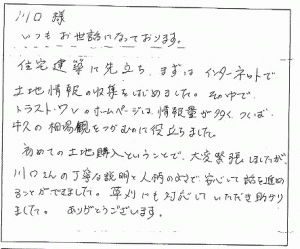 川口 様
いつも お世話になっております。
住宅建築に先立ち、まずは インターネットで
土地情報の収集をはじめました。その中で、
トラスト・ワンのホームページは 情報量が多く、つくば・
牛久の 相場観をつかむのに役立ちました。
初めての土地購入ということで、大変緊張しましたが、
川口さんの丁寧な説明と人柄のよさで 安心して話を進め
ることができました。草刈にも対応していただき助かり
ました。 ありがとうございます。